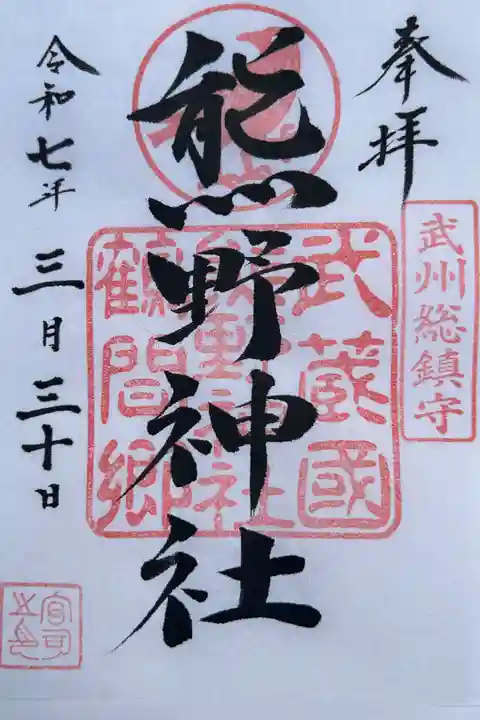 奉拝
武州総鎮守
熊野神社
武蔵國
熊野神社
鶴間郷
令和七年
三月三十日
宮司之印